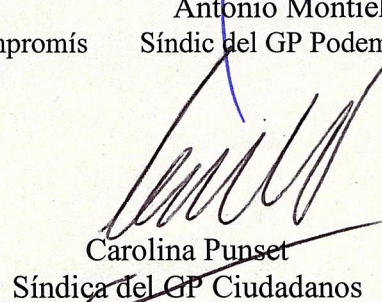 Antonio Montiel
mpromís Síndic del GP Podem
Carolina Punset
Síndica del GP Ciudadanos